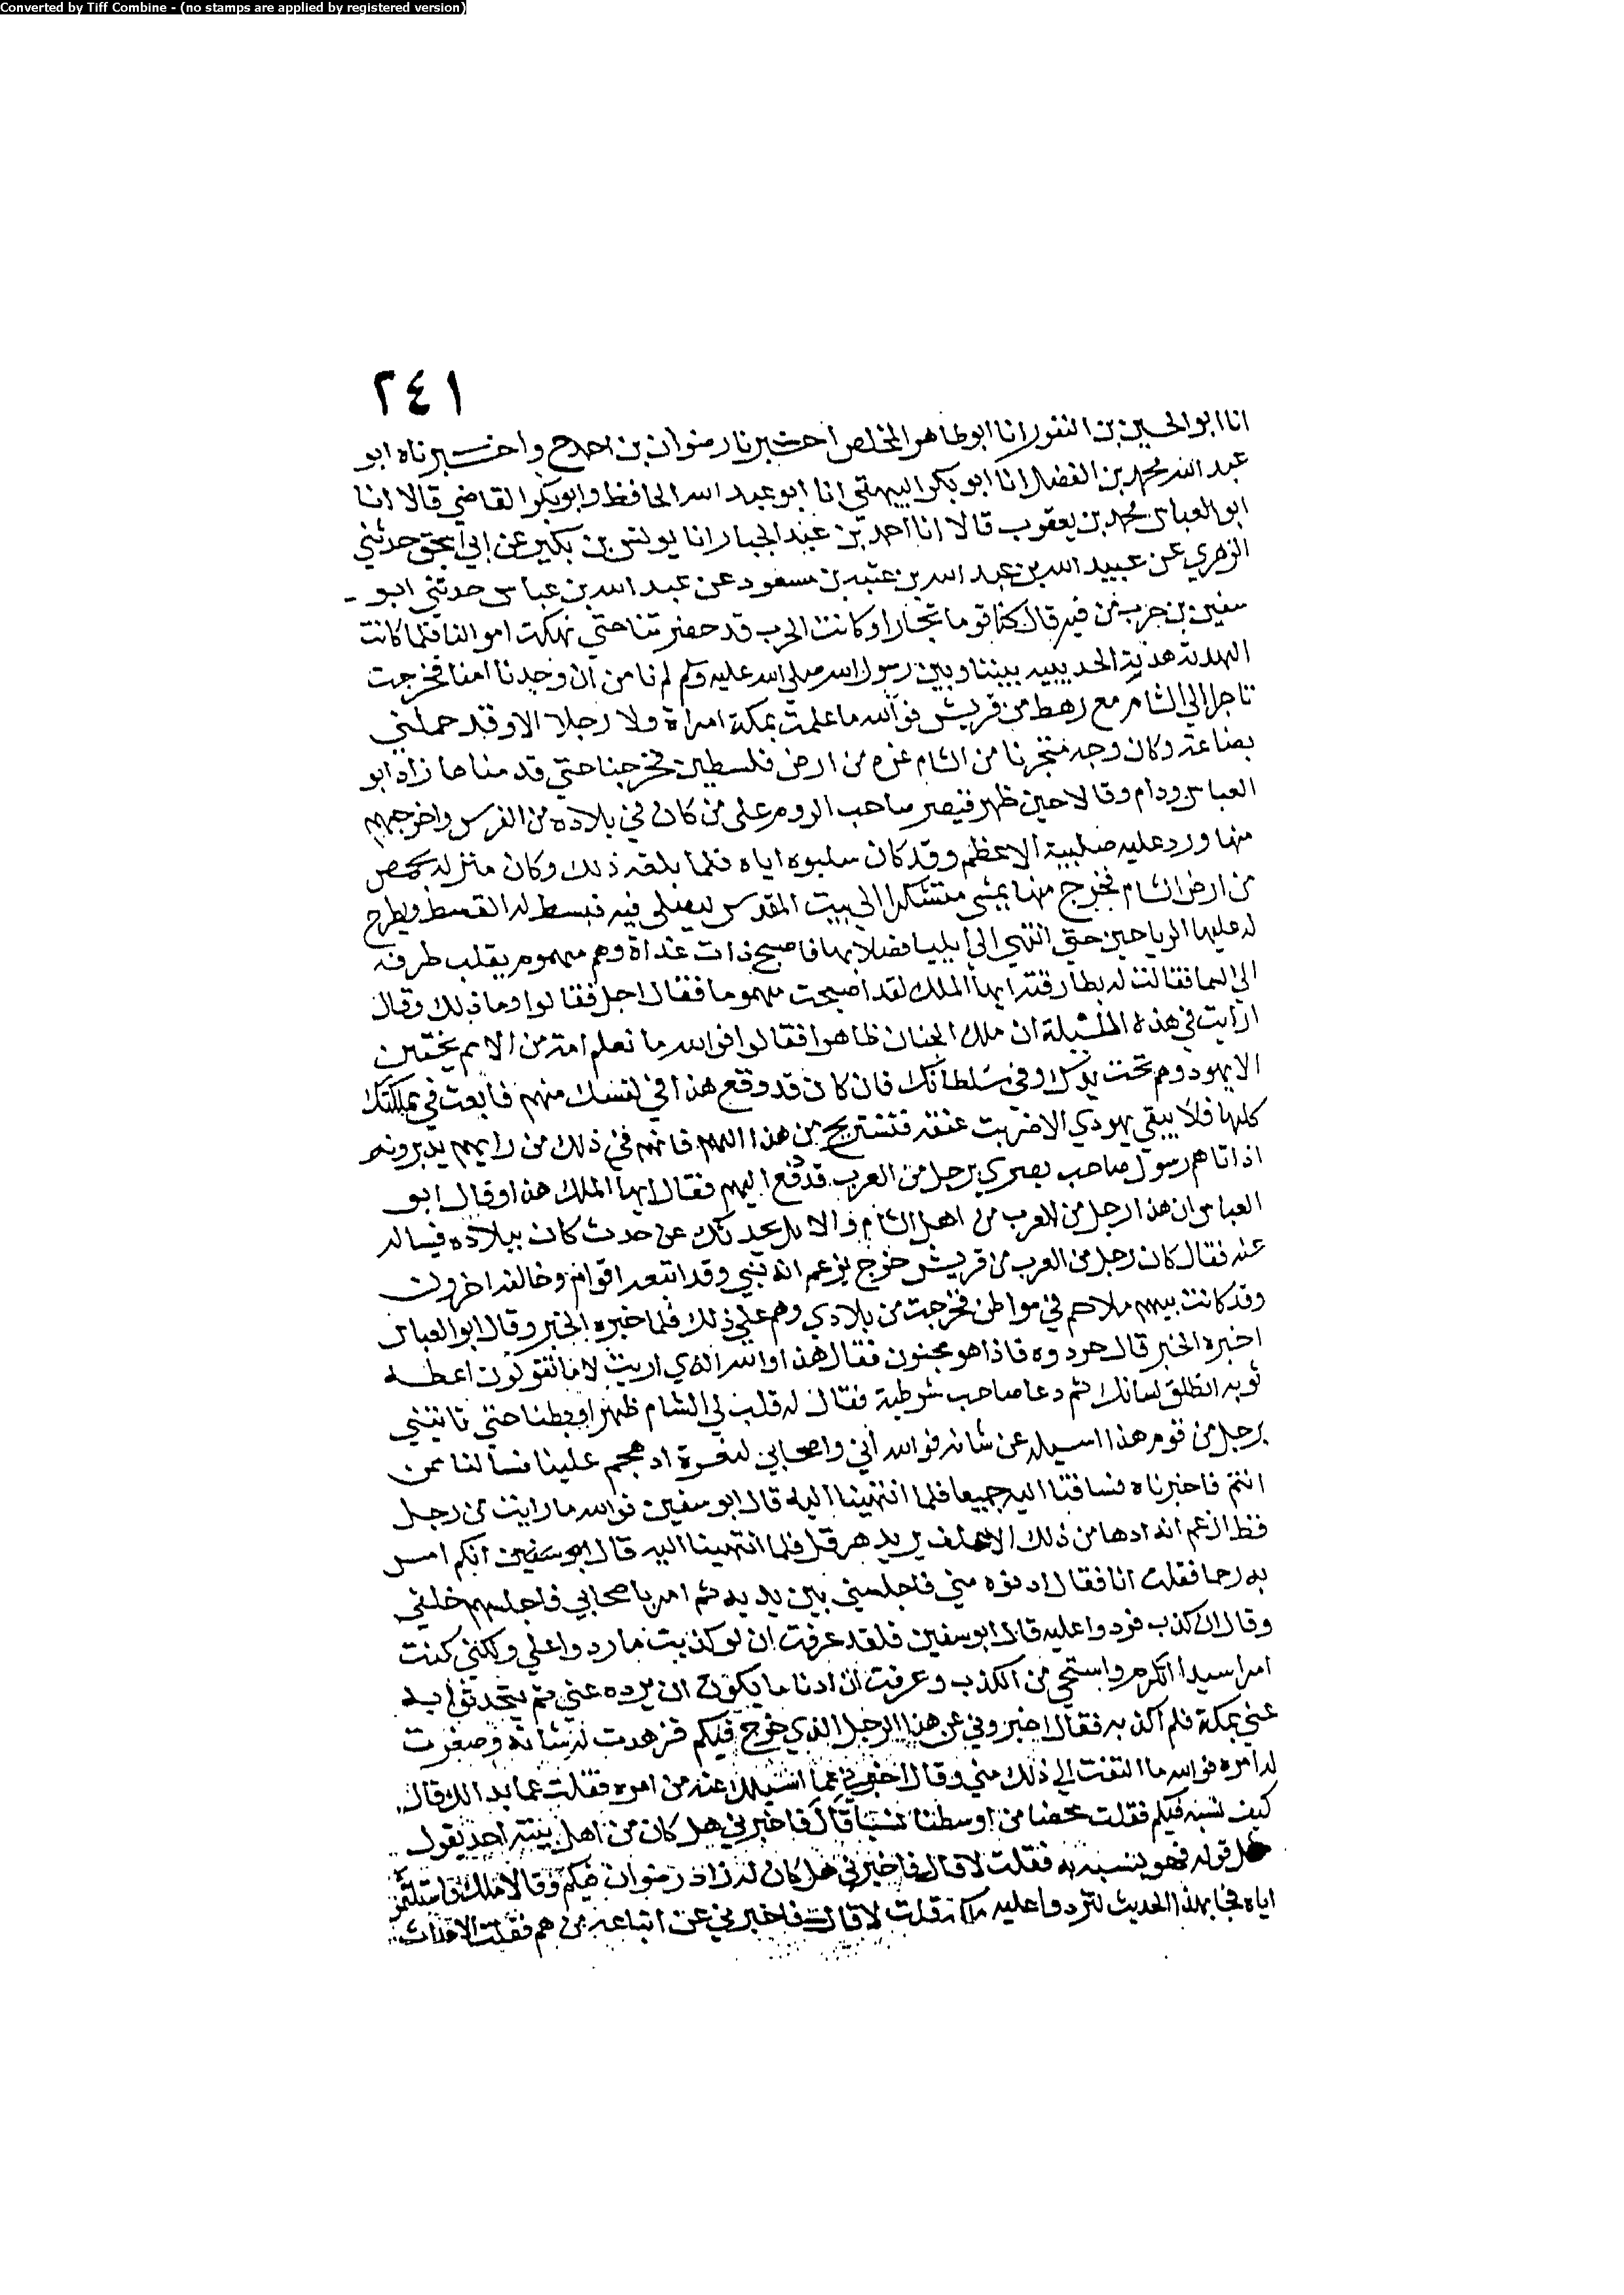 Converted by Tiff Combine - (no stamps are applied by registered version)
٢٤١
انا ابو الحسين بن النقور انا ابو طاهر المخلص اخبرنا رضوان بن احمد ح واخبرناه ابو
عبد الله محمد بن الفضل انا ابو بكر البيهقي انا ابو عبد الله الحافظ وابو بكر القاضي قالا انا
ابو العباس محمد بن يعقوب قالا انا احمد بن عبد الجبار انا يونس بن بكير عن ابن اسحق حدثني
الزهري عن عبيد الله بن عبد الله بن عتبه بن مسعود عن عبد الله بن عباس حدثني ابو -
سفين بن حرب من فيه قال كنا قوما تجارا وكانت الحرب قد حصرتنا حتى نهكت اموالنا فلما كانت
الهدنة هدنة الحديبيه بيننا وبين رسول الله صلى الله عليه وسلم لم نا من ان وجدنا امنا فخرجت
تاجرا الي الشام مع رهط من قريش فوالله ما علمت بمكة امراة ولا رجلا الا وقد حملني
بضاعة وكان وجه متجرنا من الشام غزه من ارض فلسطين فخرجنا حتي قدمناها زاد ابو
العباس ودام وقالا حين ظهر قيصر صاحب الروم علي من كان في بلاده من الفرس واخرجهم
منها ورد عليه صليبه الاعظم وقد كان سلبوه اياه فلما بلغه ذلك وكان منزله بحمص
من ارض الشام فخرج منها يمشي متشكرا الي بيت المقدس ليصلي فيه فبسط له البسط ويطرح
له عليها الرياحين حتي انتهي الي ايليا فصلا بها فاصبح ذات غداة وهو مهموم يقلب طرفه
الي السما فقالت له بطارقته ايها الملك لقد اصبحت مهموما فقال اجل فقالوا وما ذلك وقال
اريت في هذه الليلة ان ملك الختان ظاهرا فقالوا فوالله ما نعلم امة من الامم يختتن
الا يهود وهم تحت يدك وفي سلطانك فان كان قد وقع هذا في نفسك منهم فابعث في مملكتك
كلها فلا يبقي يهودي الا ضربت عنقه فتستريح من هذا الهم فانهم في ذلك من رايهم يدبرونه
اذ اتاهم رسول صاحب بصري برجل من العرب قد وقع اليهم فقال ايها الملك هذا وقال ابو
العباس ان هذا رجل من العرب من اهل الشام والابل يحدثك عن حدث كان ببلاده فيساله
عنه فقال كان رجل من العرب من قريش خرج يزعم انه نبي وقد اتبعه اقوام وخالفه اخرون
وقد كانت بينهم ملاحم في مواطن فخرجت من بلادي وهم علي ذلك فلما خبره الخبر وقال ابو العباس
اخبره الخبر قال جردوه فاذا هو مختون فقال هذا والله الذي اريت لا ما تقولون اعطه
ثوبه انطلق لشانك ثم دعا صاحب شرطته فقال له قلب لي الشام ظهرا وبطنا حتي تاتيني
برجل من قوم هذا اسيله عن شانه فوالله اني واصحابي لبغزة اذ هجم علينا فسالنا ممن
انتم فاخبرناه فساقنا اليه جميعا فلما انتهينا اليه قال ابو سفين فوالله ما رايت من رجل
قط ازعم انه ادها من ذلك الاغلف يريد هرقل فلما انتهينا اليه قال ابو سفين ايكم امس
به رحما فقلت انا فقال ادنوه مني فاجلسني بين يديه ثم امر باصحابي فاجلسهم خلفي
وقال ان كذب فردوا عليه قال ابو سفين فلقد عرفت ان لو كذبت ما ردوا علي ولكني كنت
امرا سيدا اتكرم واستحي من الكذب وعرفت ان ادنا ما يكون ان يرده عني ثم يتحدثوا به
عني بمكة فلم اكذبه فقال اخبروني عن هذا الرجل الذي خرج فيكم فزهدت له شانه وصغرت
له امره فوالله ما التفت الي ذلك مني وقال اخبرني عما اسيلك عنه من امره فقلت عما بدا لك قال
كيف نسبه فيكم فقلت محضا من اوسطنا نسبا قال فاخبرني هل كان من اهل بيته احد يقول
مثل قوله فهو ينسبه به فقلت لا قال فاخبرني هل كان له زاد رضوان فيكم وقالا ملك فاستلبتم
اياه فجا بهذا الحديث لتردوا عليه ملكه فقلت لا قال فاخبرني عن اتباعه من هم فقلت الاحداث